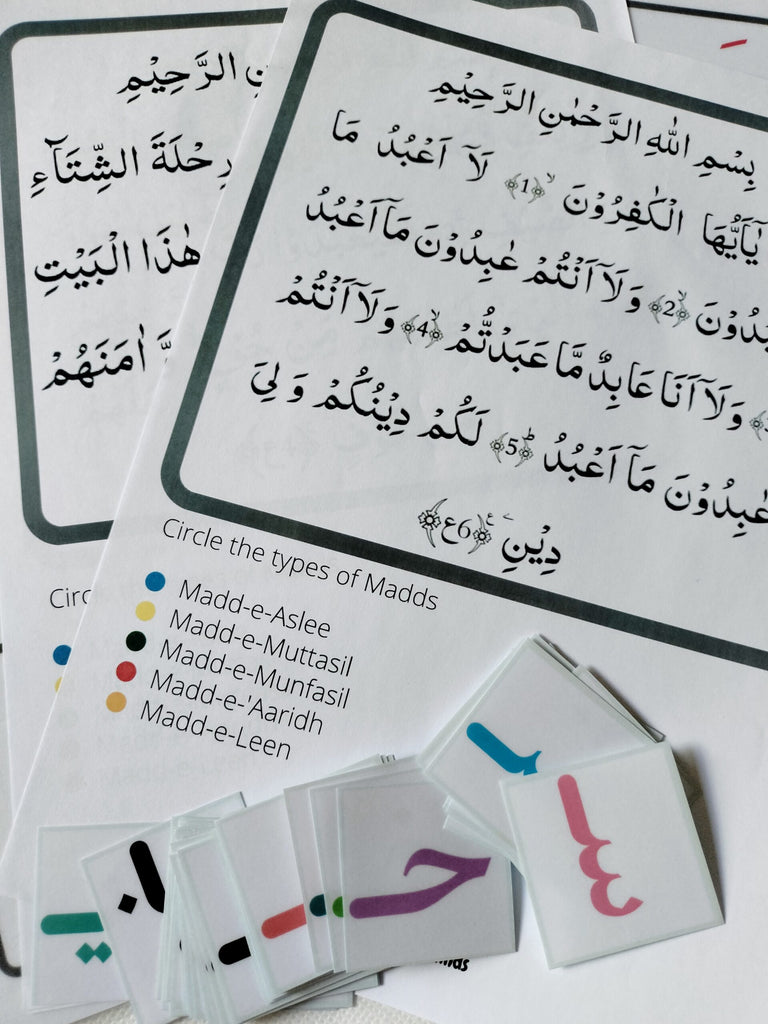 بِسْمِ اللهِ الرَّحْمٰنِ الرَّحِيْمِ
يٰٓاَيُّهَا الْكٰفِرُوْنَ ۙ ﴿1﴾ لَآ اَعْبُدُ مَا
﴿2﴾ۙ وَلَآ اَنْتُمْ عٰبِدُوْنَ مَآ اَعْبُدُ
وَلَآ اَنَا عَابِدٌ مَّا عَبَدْتُّمْ ﴿4﴾ۙ وَلَآ اَنْتُمْ
عٰبِدُوْنَ مَآ اَعْبُدُ ﴿5﴾ؕ لَكُمْ دِيْنُكُمْ وَ لِيَ
دِيْنِ ﴿6ع﴾
Circle the types of Madds
Madd-e-Aslee
Madd-e-Muttasil
Madd-e-Munfasil
Madd-e-'Aaridh
Madd-e-Leen
الرَّحِيْمِ
رِحْلَةَ الشِّتَآءِ
هٰذَا الْبَيْتِ
اٰمَنَهُمْ
حـ
سـ